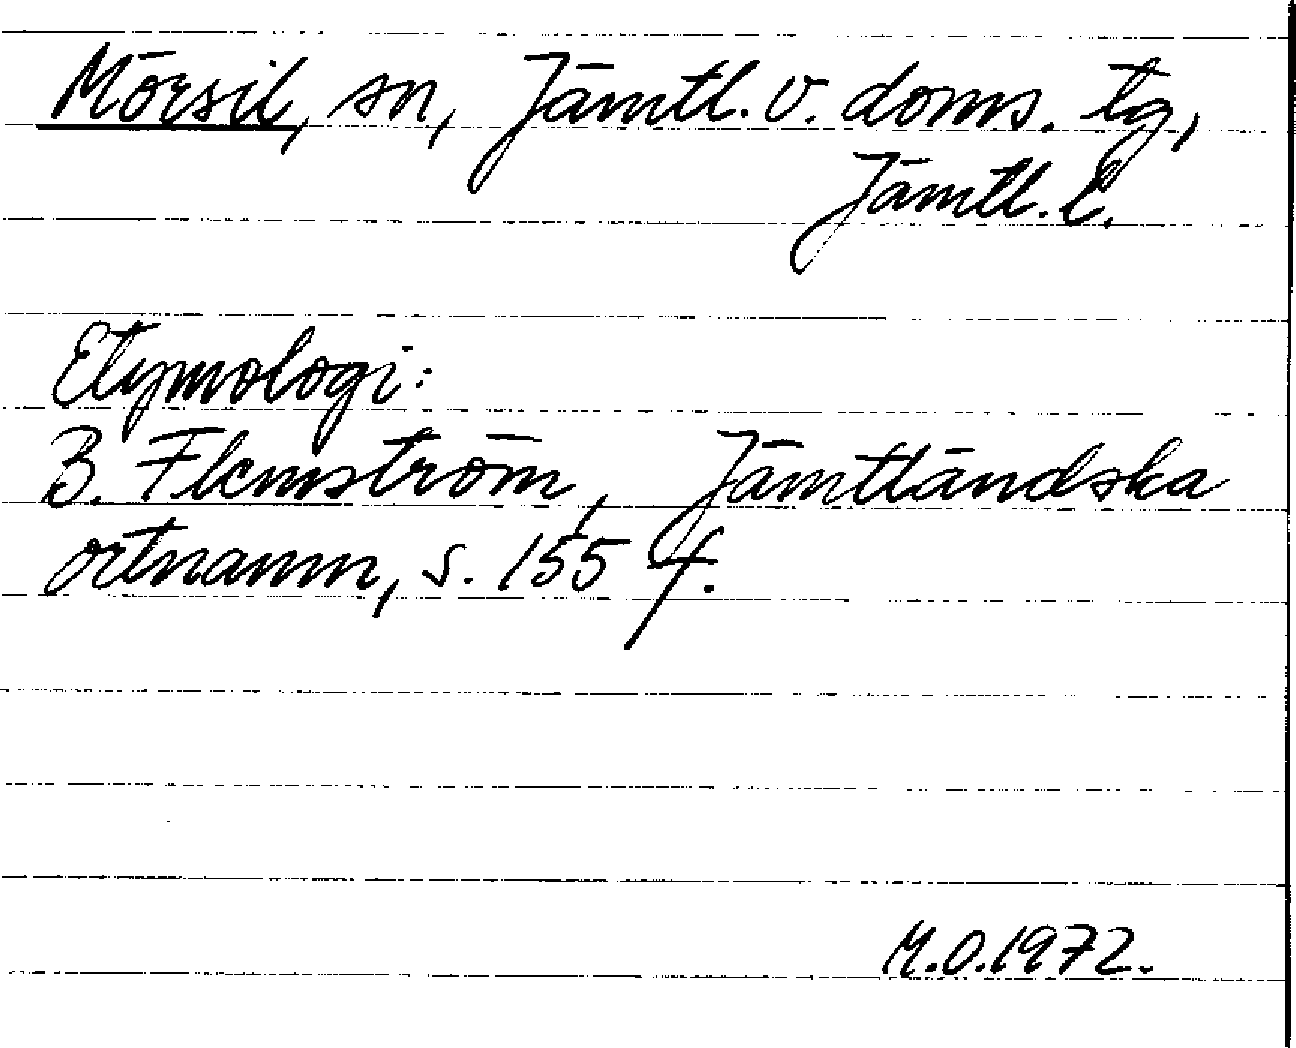 Mörsil, sn, Jämtl. v. doms. tg,
Jämtl. l.
Etymologi:
B. Flemström, Jämtländska
ortnamn, s. 155 f.
M.O.1972.